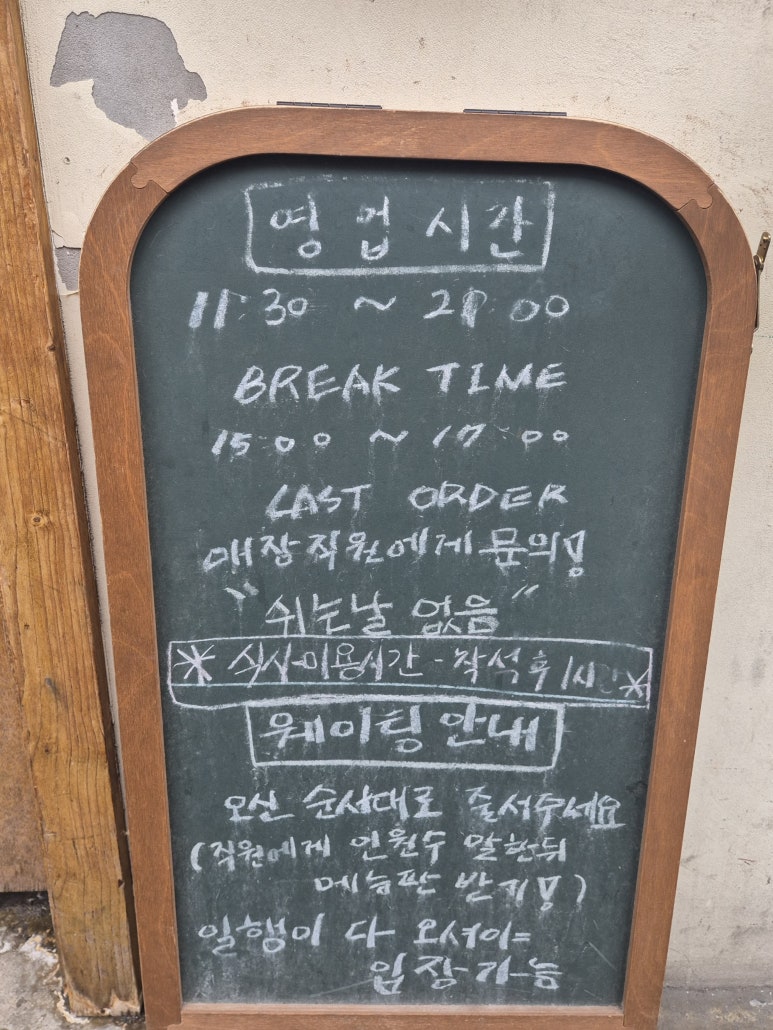 영업시간
11:30 ~ 21:00
BREAK TIME
15:00 ~ 17:00
LAST ORDER
매장직원에게 문의!
"쉬는날 없음"
* 식사이용시간 - 착석 후 1시간 *
웨이팅 안내
오신 순서대로 줄서주세요
(직원에게 인원수 말한뒤
메뉴판 받기!)
일행이 다 오셔야
입장가능